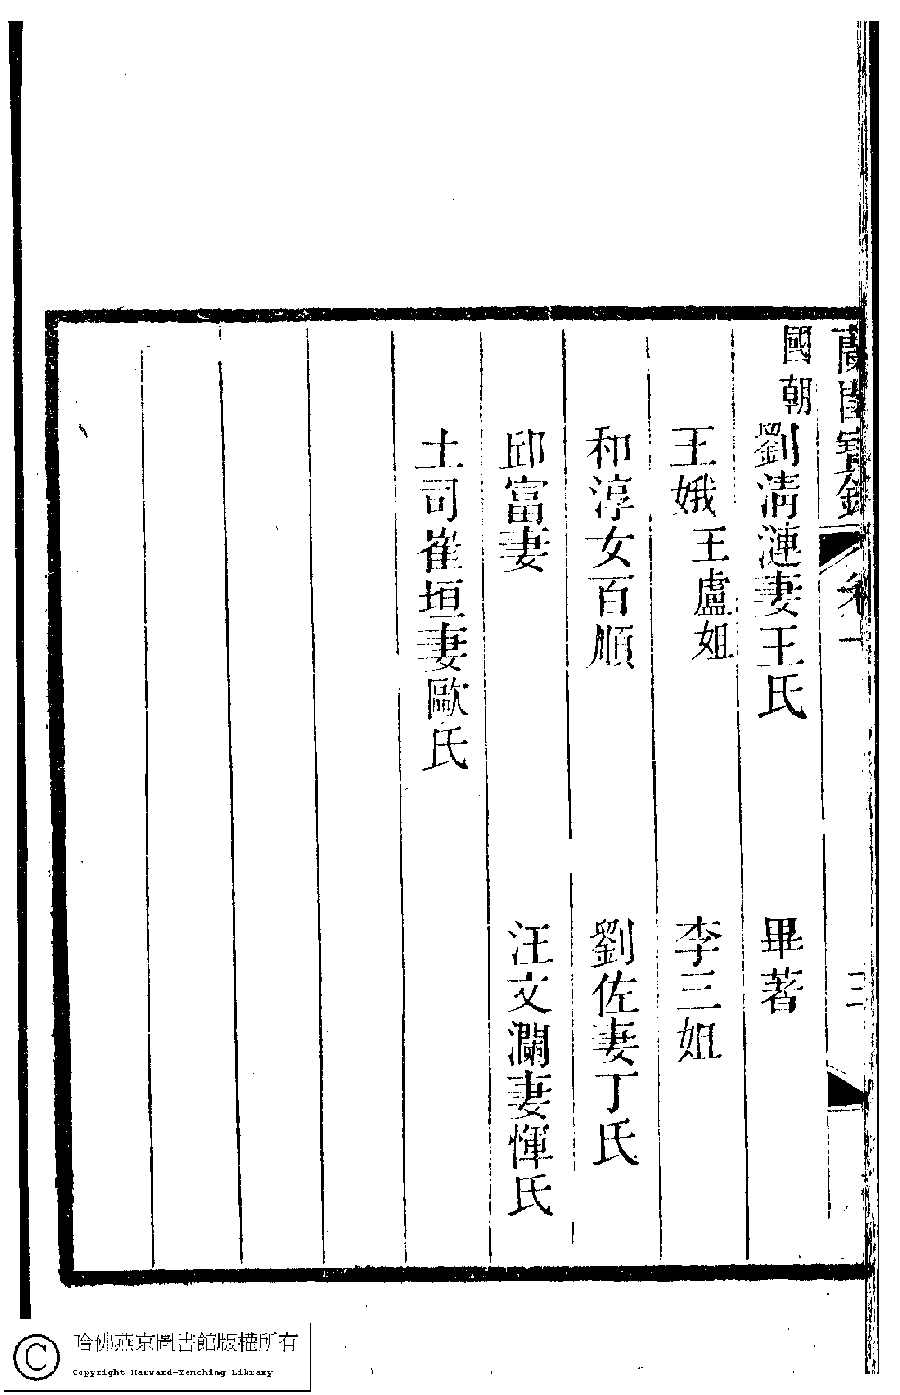 蘭閨寶錄 卷一 三
國朝
劉清漣妻王氏 畢著
王娥 王盧姐 李三姐
和淳女百順 劉佐妻丁氏
邱富妻 汪文瀾妻惲氏
土司崔垣妻歐氏
哈佛燕京圖書館版權所有
Copyright Harvard-Yenching Library